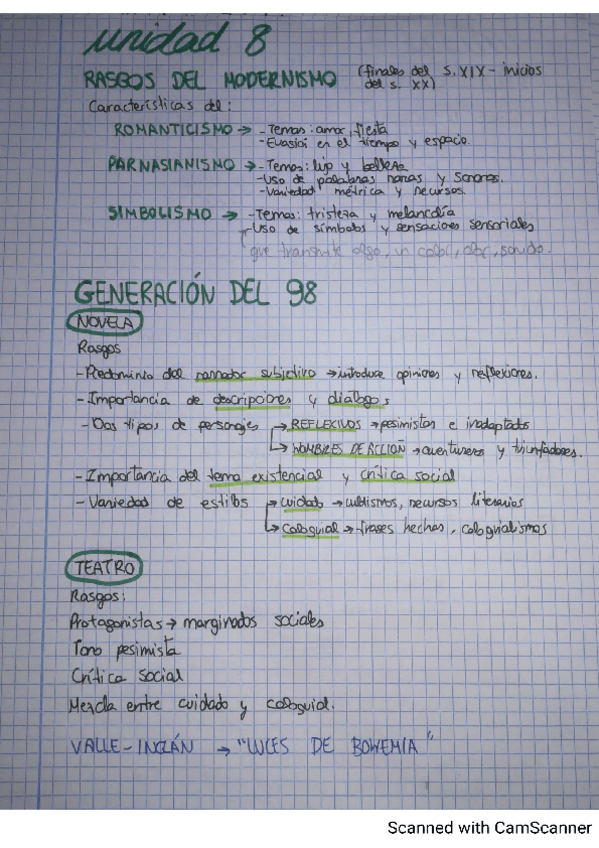 unidad 8
RASGOS DEL MODERNISMO (finales del s. XIX - inicios
del s. XX)
Características del:
ROMANTICISMO → - Temas: amor, fiesta
- Evasión en el tiempo y espacio.
PARNASIANISMO → - Temas: lujo y belleza
- Uso de palabras raras y sonoras.
- Variedad métrica y recursos.
SIMBOLISMO → - Temas: tristeza y melancolía
- Uso de símbolos y sensaciones sensoriales
que transmite algo, un color, olor, sonido.
GENERACIÓN DEL 98
NOVELA
Rasgos
- Predominio del narrador subjetivo → introduce opiniones y reflexiones.
- Importancia de descripciones y diálogos
- Dos tipos de personajes → REFLEXIVOS → pesimistas e inadaptados
→ HOMBRES DE ACCIÓN → aventureros y triunfadores.
- Importancia del tema existencial y crítica social
- Variedad de estilos → cuidado → cultismos, recursos literarios
→ Coloquial → frases hechas, coloquialismos
TEATRO
Rasgos:
Protagonistas → marginados sociales
Tono pesimista
Crítica social
Mezcla entre cuidado y coloquial.
VALLE-INCLÁN → "LUCES DE BOHEMIA"
Scanned with CamScanner